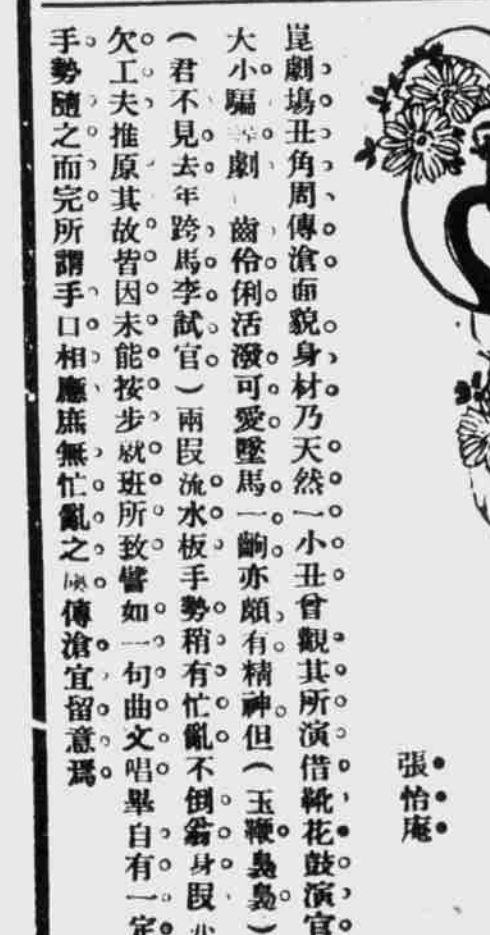 張怡庵
崑劇塲丑角周傳滄面貌身材乃天然一小丑曾觀其所演借靴花鼓演官
大小騙劇齒伶俐活潑可愛墜馬一齣亦頗有精神但（玉鞭裊裊）
（君不見去年跨馬李試官）兩段流水板手勢稍有忙亂不倒翁身段
欠工夫推原其故皆因未能按步就班所致譬如一句曲文唱畢自有一定
手勢隨之而完所謂手口相應庶無忙亂之傳滄宜留意焉